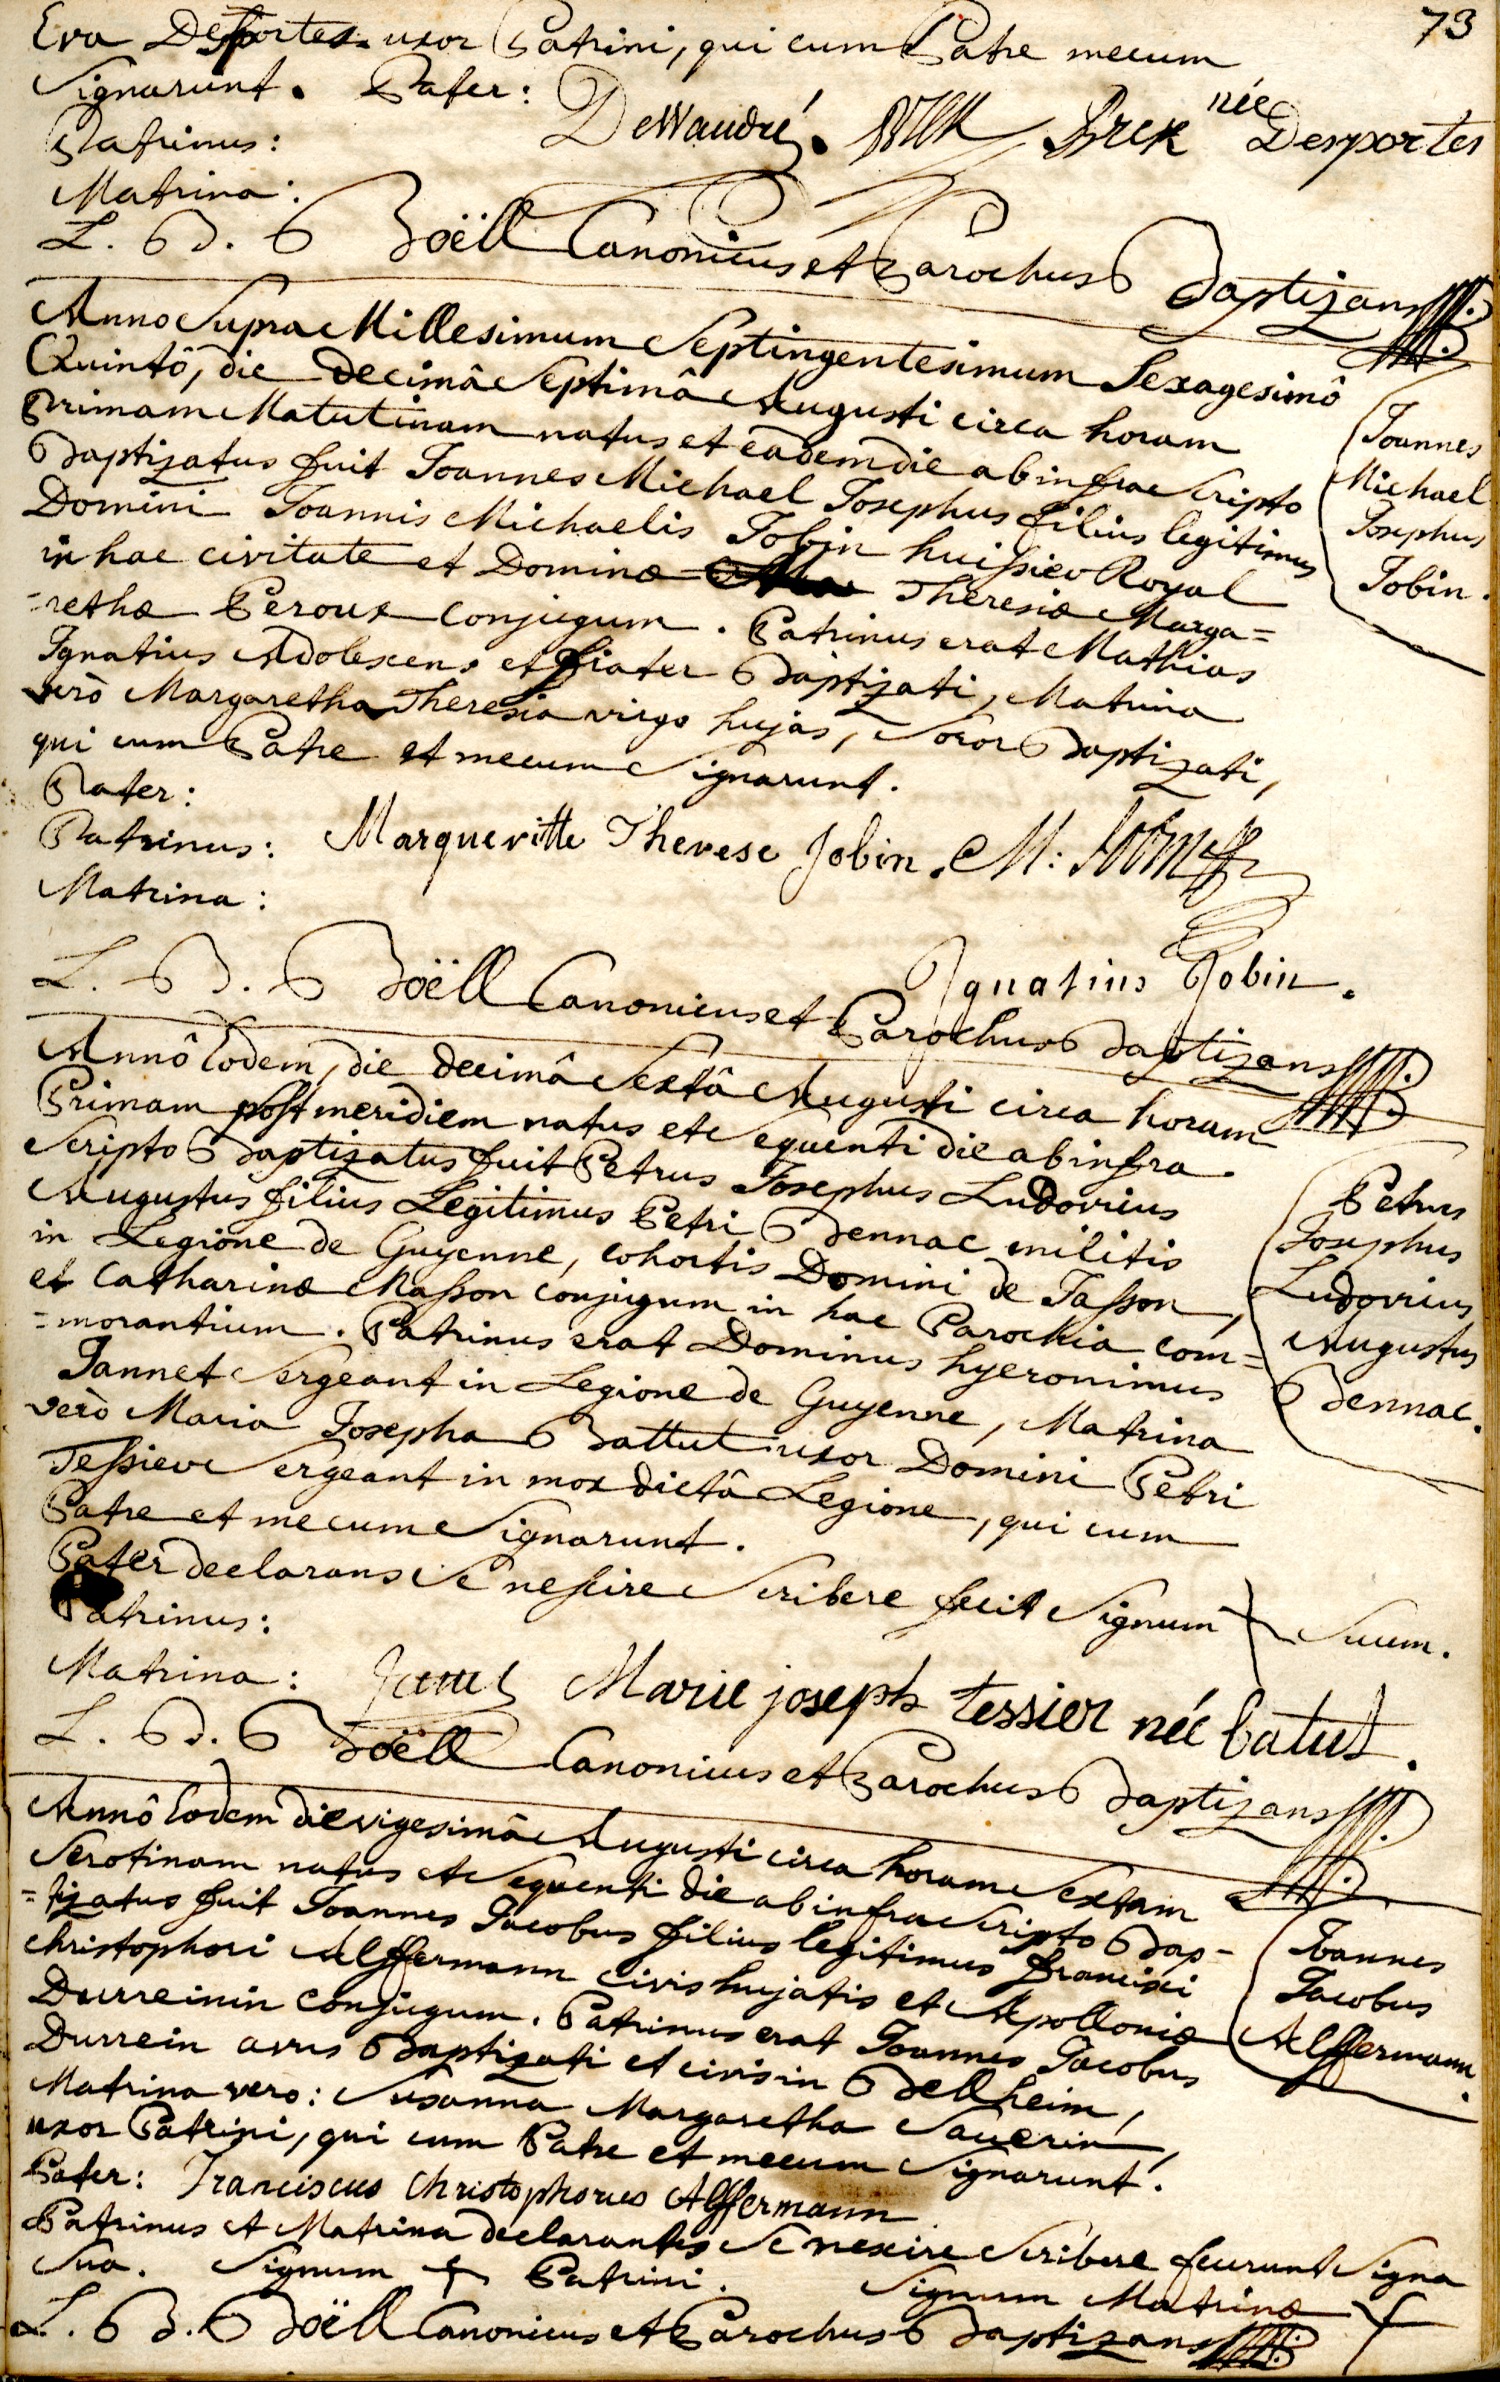 73
Eva Desportes uxor Patrini, qui cum Patre mecum
Signarunt. Pater: DeWaudré. Brck née Desportes
Patrinus:
Matrina:
L. B. Boëll Canonicus et Parochus Baptizans
Anno Supra Millesimum Septingentesimum Sexagesimô
Quintô, die decimâ Septimâ Augusti circa horam
Primam Matutinam natus et eâdem die ab infra Scripto
Baptizatus fuit Joannes Michael Josephus filius legitimus
Domini Joannis Michaelis Jobin huissier Royal
in hac civitate et Dominæ Theresiæ Marga=
=rethæ Peroux conjugum. Patrinus erat Mathias
Ignatius Adolescens et frater Baptizati, Matrina
verò Margaretha Theresia virgo hujas, Soror Baptizati,
qui cum Patre et mecum Signarunt.
Joannes
Michael
Josephus
Jobin.
Pater:
Patrinus: Margueritte Therese Jobin. M: Jobin
Matrina:
Ignatius Jobin.
L. B. Boëll Canonicus et Parochus Baptizans
Annô Eodem, die decimâ Sextâ Augusti circa horam
Primam post meridiem natus et Sequenti die ab infra
Scripto Baptizatus fuit Petrus Josephus Ludovicus
Augustus filius Legitimus Petri Bennac militis
in Legione de Guyenne, cohortis Domini de Jasson,
et Catharinæ Masson conjugum in hac Parochia com=
=morantium. Patrinus erat Dominus hyeronimus
Jannet Sergeant in Legione de Guyenne, Matrina
verò Maria Josepha Battut uxor Domini Petri
Tessier Sergeant in mox dictâ Legione, qui cum
Patre et mecum Signarunt.
Petrus
Josephus
Ludovicus
Augustus
Bennac.
Pater declarans Se nescire Scribere fecit Signum + Suum.
Patrinus:
Matrina: Marie joseph tessier née batut.
L. B. Boëll Canonicus et Parochus Baptizans
Annô Eodem die vigesimâ Augusti circa horam Sextam
Serotinam natus et Sequenti die ab infra Scripto Bap-
=tizatus fuit Joannes Jacobus filius legitimus francisci
christophori Alffermann civis hujatis et Apolloniæ
Durreinin conjugum. Patrinus erat Joannes Jacobus
Durrein avus Baptizati et civis in Bellheim,
Matrina vero: Susanna Margaretha Sauerin,
uxor Patrini, qui cum Patre et mecum Signarunt.
Joannes
Jacobus
Alffermann.
Pater: Franciscus Christophorus Alffermann
Patrinus et Matrina declarantes Se nescire Scribere fecerunt Signa
Sua. Signum + Patrini. Signum Matrinæ +
L. B. Boëll Canonicus et Parochus Baptizans